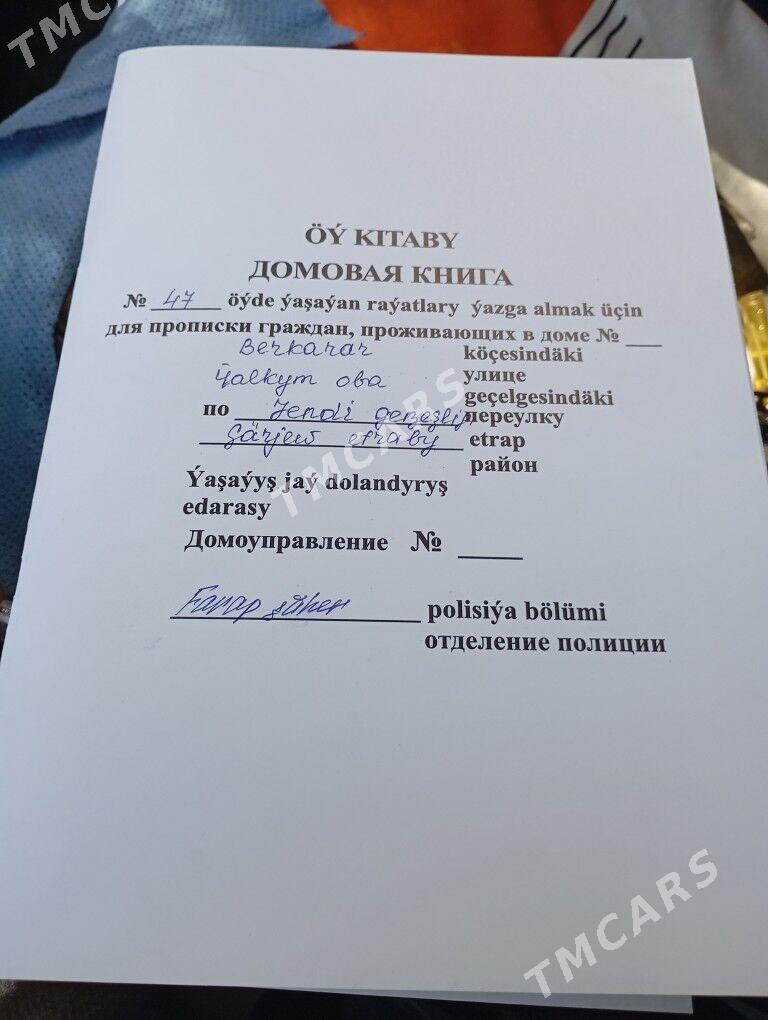 TMCARS
ÖÝ KITABY
ДОМОВАЯ КНИГА
№ 47 öýde ýaşaýan raýatlary ýazga almak üçin
для прописки граждан, проживающих в доме №
Berkarar köçesindäki
Ýalkym oba улице
geçelgesindäki
по Jendi geňeşlik переулку
Çärjew etraby etrap
район
TMCARS
Ýaşaýyş jaý dolandyryş
edarasy
Домоуправление №
Farap şäher polisiýa bölümi
отделение полиции
TMCARS